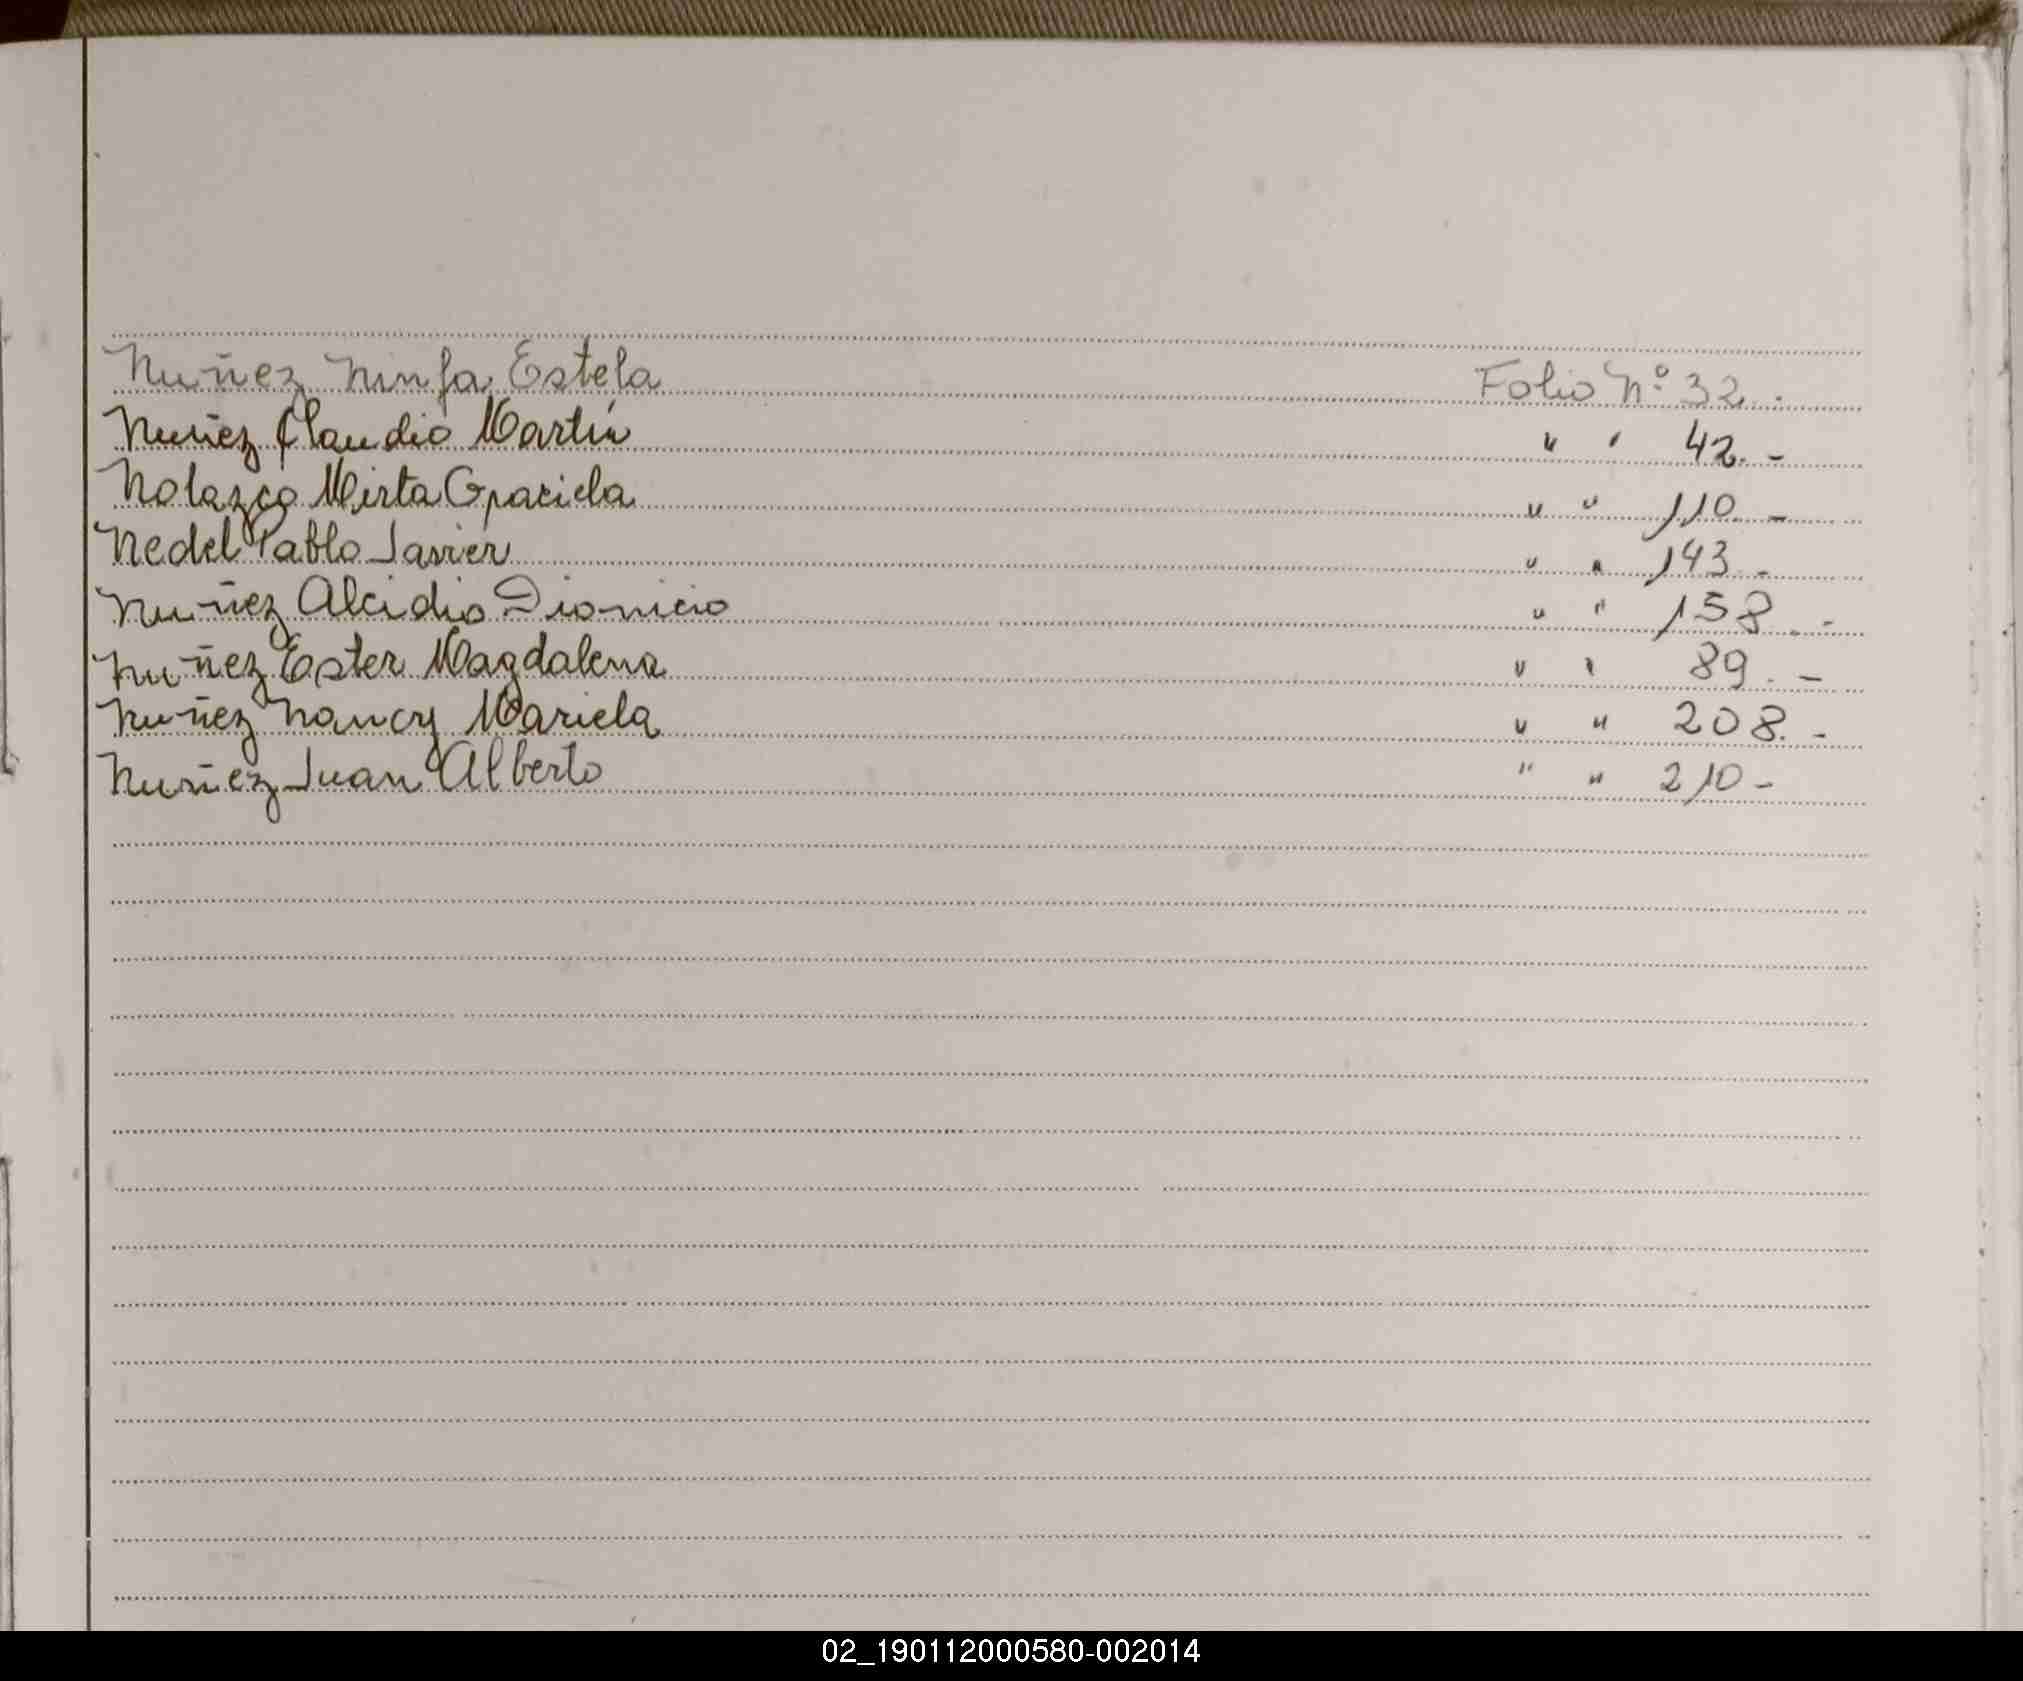 Nuñez Ninfa Estela Folio Nº 32.
Nuñez Claudio Martín " " 42.-
Nolazco Mirta Graciela " " 110.-
Nedel Pablo Javier " " 143.-
Nuñez Alcidio Dionicio " " 158.-
Nuñez Ester Magdalena " " 89.-
Nuñez Nancy Mariela " " 208.-
Nuñez Juan Alberto " " 210-
02_190112000580-002014